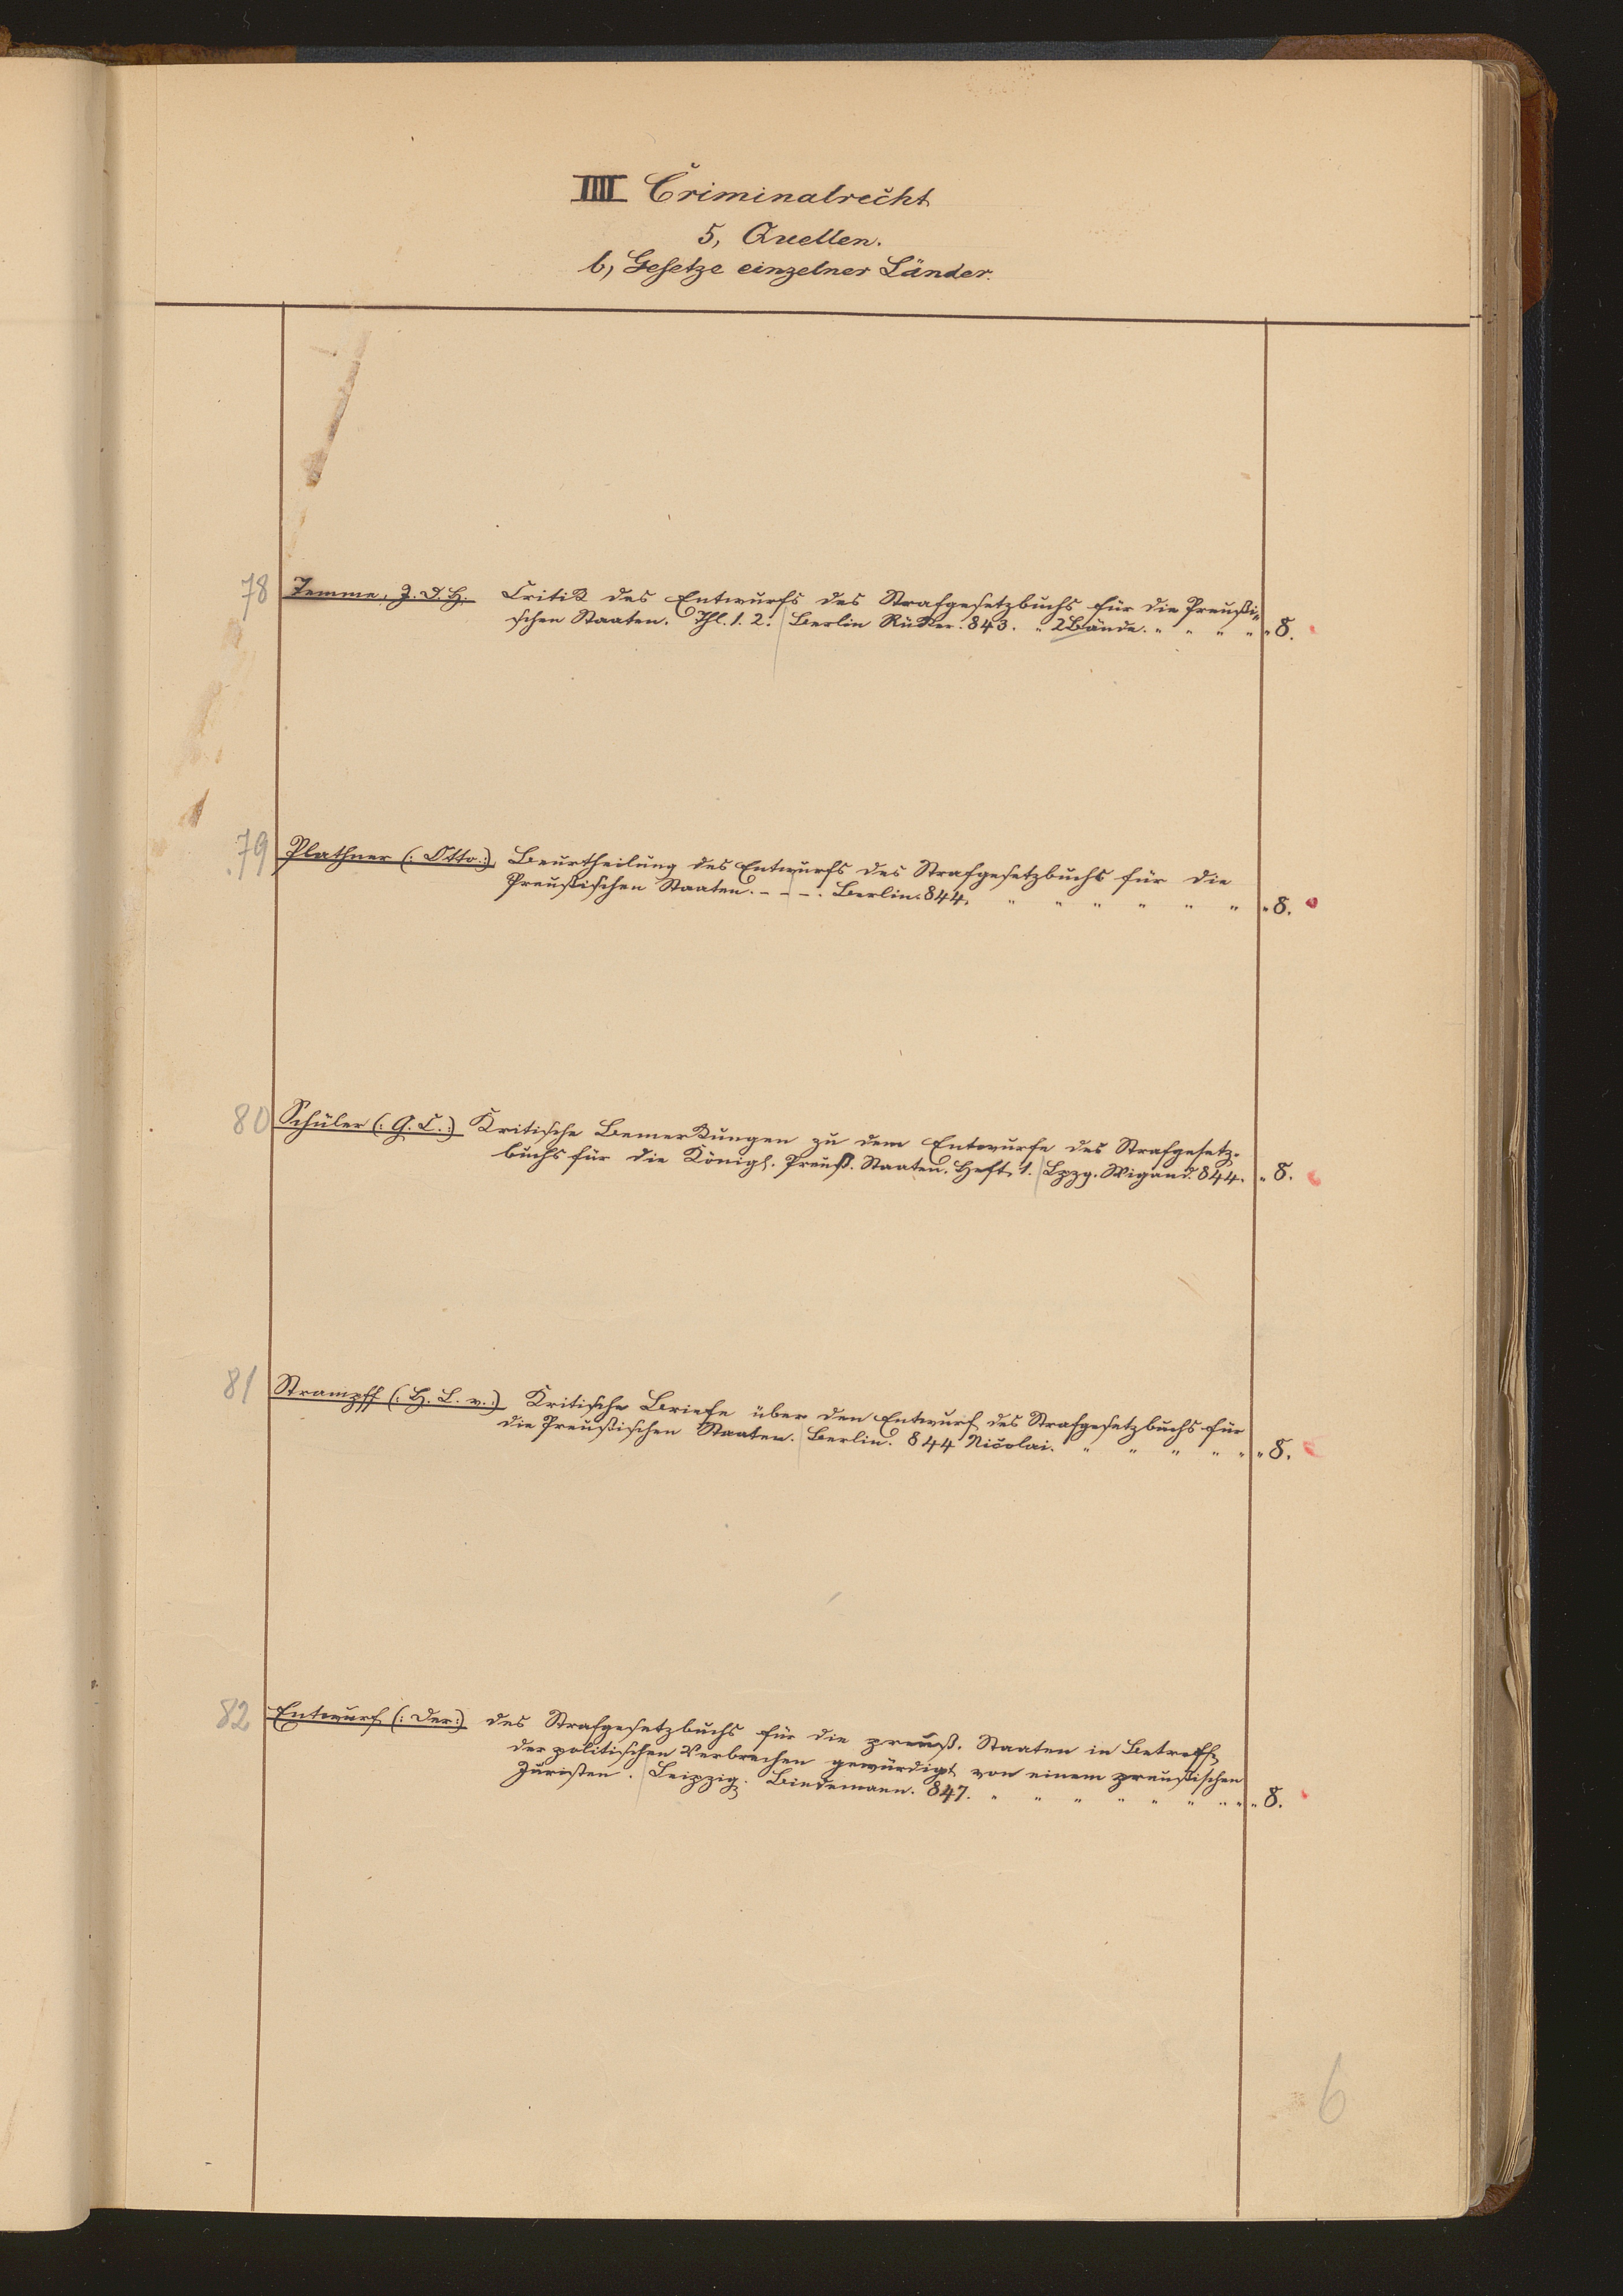 IIII Criminalrecht
5, Quellen.
b, Gesetze einzelner Länder.
78 Temme, J. D. H. Critik des Entwurfs des Strafgesetzbuchs für die Preußi-
schen Staaten. Thl. 1. 2. Berlin Rücker. 843. " 2 Bände. " " " " " 8.
79 Plathner (: Otto.:) Beurtheilung des Entwurfs des Strafgesetzbuchs für die
Preußischen Staaten. - - - . Berlin. 844. " " " " " " " 8.
80 Schüler (: G. C. :) Kritische Bemerkungen zu dem Entwurfe des Strafgesetz-
buchs für die Königl. Preuß. Staaten. Heft. 1. Lpzg. Wigand. 844. " 8.
81 Strampff (: H. L. v. :) Kritische Briefe über den Entwurf des Strafgesetzbuchs für
die Preußischen Staaten. Berlin. 844 Nicolai. " " " " " " 8.
82 Entwurf (: Der :) des Strafgesetzbuchs für die preuß. Staaten in Betreff
der politischen Verbrechen gewürdigt von einem preußischen
Juristen. Leipzig. Biedermann. 847. " " " " " " " " " 8.
6